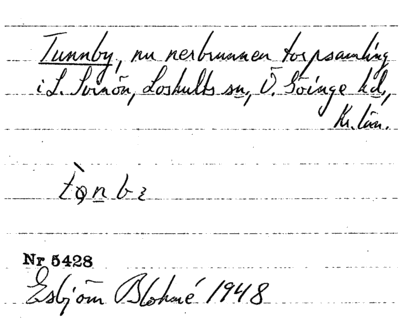 Tunnby, nu nerbrunnen torpsamling
i L. Svinön, Loshults sn, Ö. Göinge hd,
Kr. län.
Nr 5428
Esbjörn Blohmé 1948